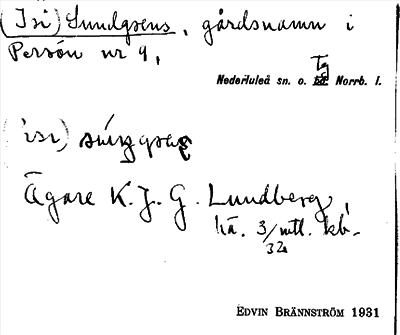 (Isi) Lundgrens, gårdsnamn i
Persön nr 9,
Nederluleå sn. o. tg Norrb. l.
(isi)
Ägare K. J. G. Lundberg,
hä. 3/32 mtl. kb.
EDVIN BRÄNNSTRÖM 1931